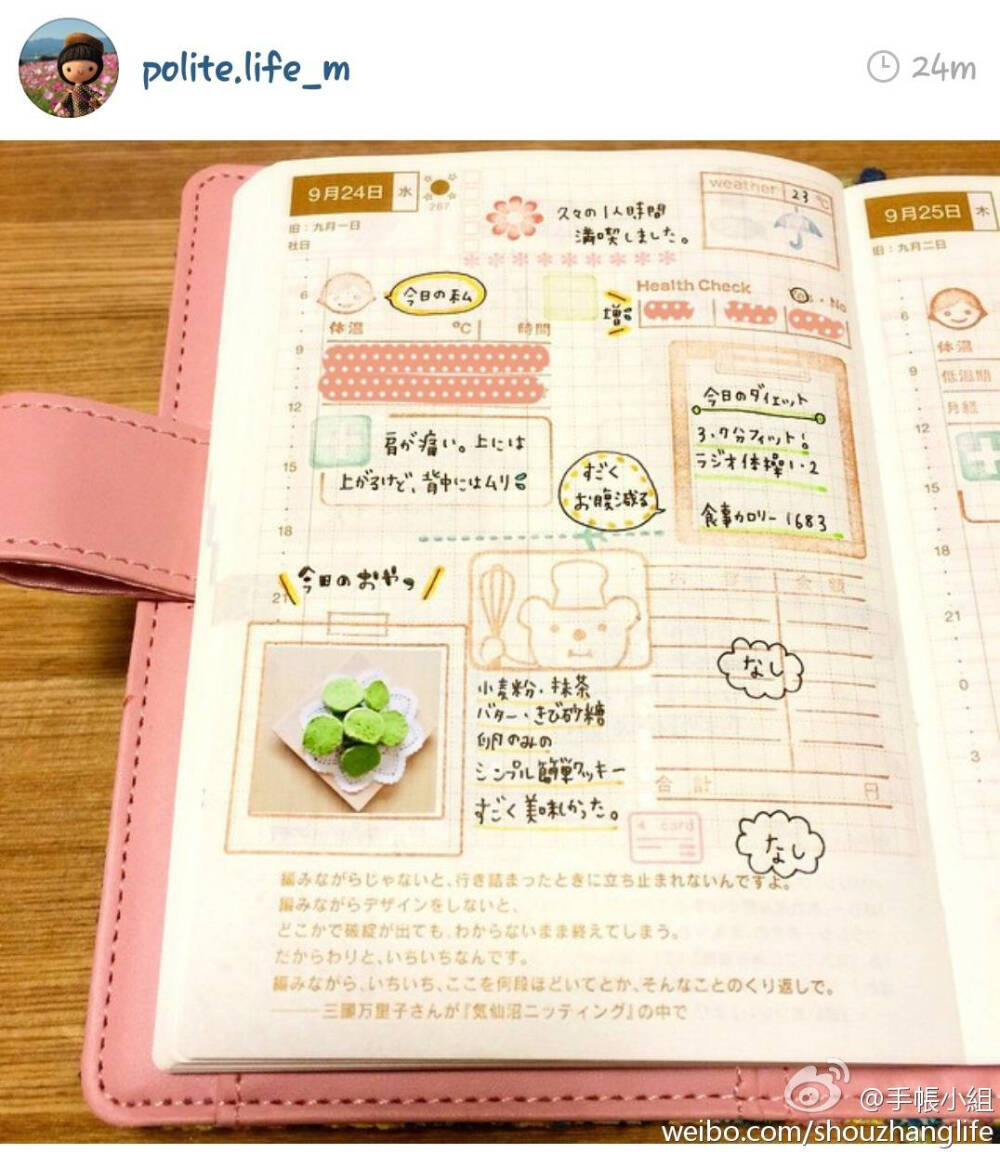 polite.life_m
24m
9月24日 水
267
旧:九月一日
社日
久々の1人時間
満喫しました。
weather 23 ℃
6
今日の私
増
Health Check
Yes・No
体温 ℃ 時間
9
12
15
18
21
肩が痛い。上には
上がるけど、背中にはムリ
すごく
お腹減る
今日のダイエット
3.7分フィット!
ラジオ体操1.2
食事カロリー 1683
今日のおやつ
小麦粉・抹茶
バター・きび砂糖
卵のみの
シンプル簡単クッキー
すごく美味しかった。
内容 金額
なし
合計 円
card
なし
編みながらじゃないと、行き詰まったときに立ち止まれないんですよ。
編みながらデザインをしないと、
どこかで破綻が出ても、わからないまま終えてしまう。
だからわりと、いちいちなんです。
編みながら、いちいち、ここを何段ほどいてとか、そんなことのくり返しで。
———三國万里子さんが『気仙沼ニッティング』の中で
9月25日 木
旧:九月二日
6
体温
9
低温期
月経
12
15
18
21
0
3
@手帳小組
weibo.com/shouzhanglife